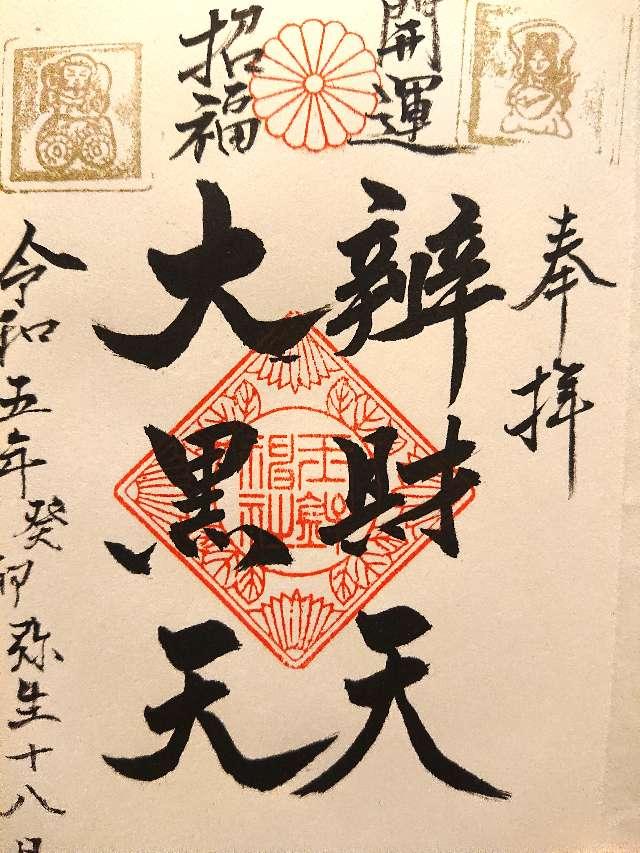 奉拝
開運
辨財天
招福
大黒天
令和五年癸卯弥生十八日